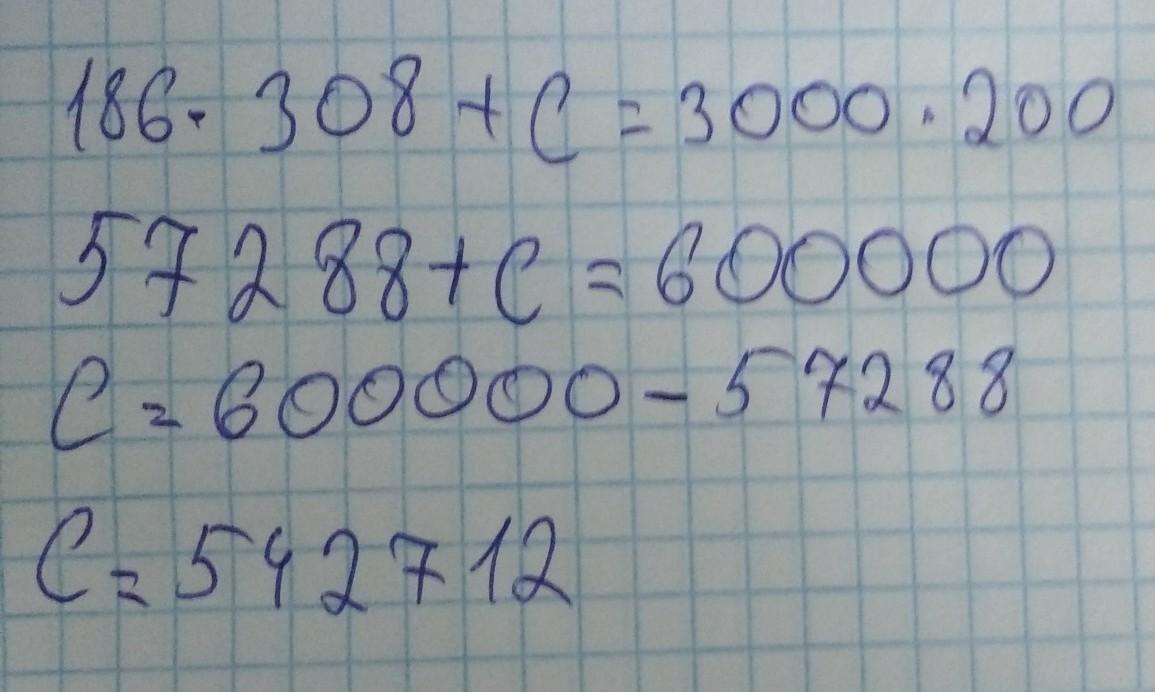 186· 308 + C = 3000 · 200
57288 + C = 600000
C = 600000 - 57288
C = 542712